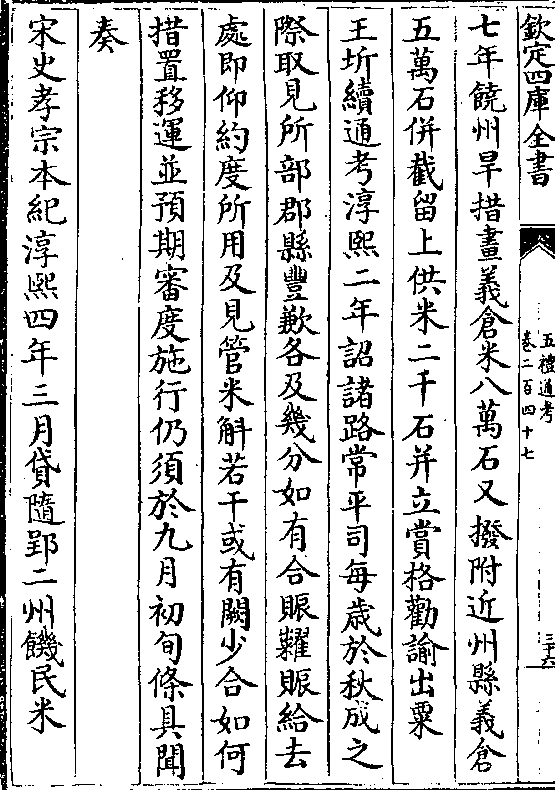 欽定四庫全書
五禮通考
卷二百四十七
三十六
七年饒州旱措畫義倉米八萬石又撥附近州縣義倉
五萬石併截留上供米二千石并立賞格勸諭出粟
王圻續通考淳熙二年詔諸路常平司每歲於秋成之
際取見所部郡縣豐歉各及幾分如有合賑糶賑給去
處即仰約度所用及見管米斛若干或有闕少合如何
措置移運並預期審度施行仍須於九月初旬條具聞
奏
宋史孝宗本紀淳熙四年三月貸隨郢二州饑民米